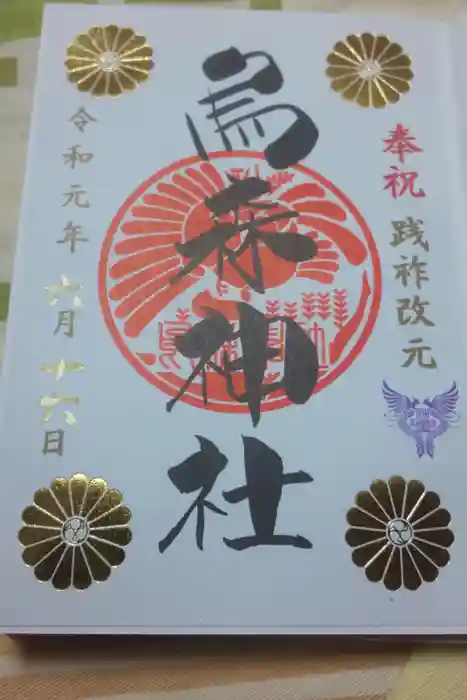 奉祝 践祚改元
烏森神社
令和元年 六月 十六日